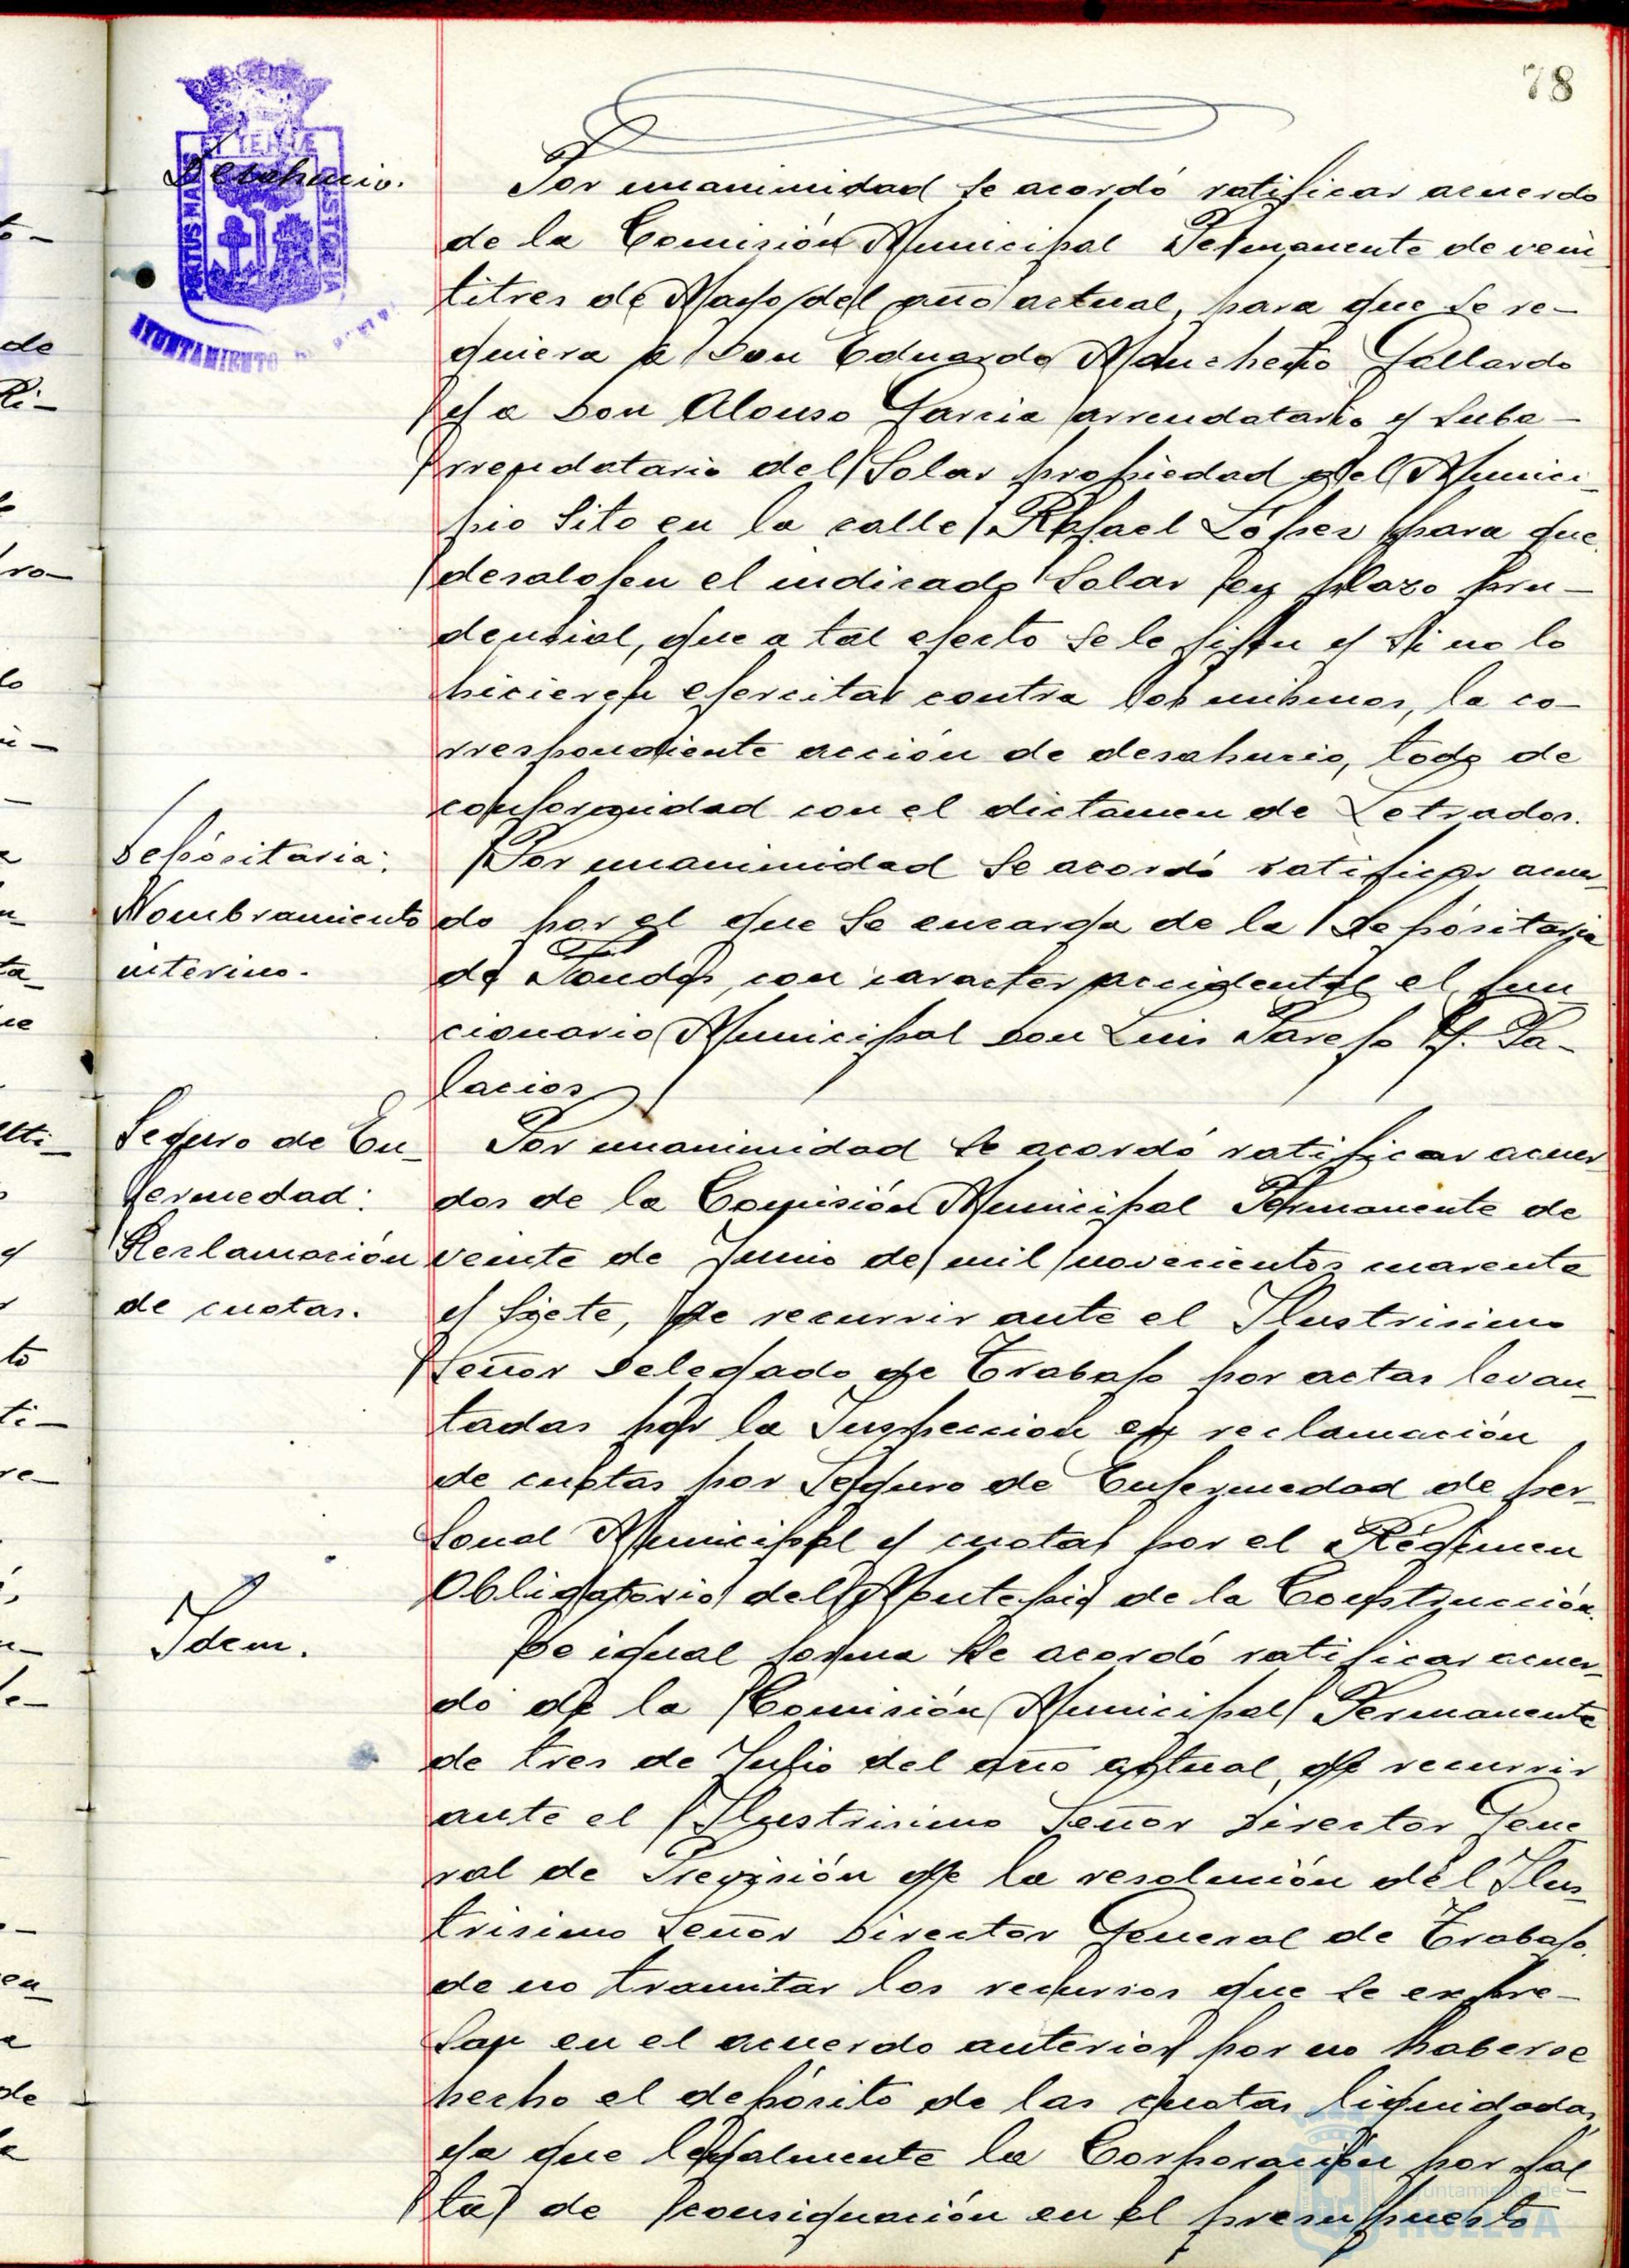 78
PORTUS MARIS
ET TERRAE
CUSTODIA
AYUNTAMIENTO DE
Desahucio.
Por unanimidad se acordó ratificar acuerdo
de la Comisión Municipal Permanente de vein
titres de Mayo del año actual, para que se re-
quiera a Don Eduardo Mancheño Gallardo
y a Don Alonso Garcia arrendatario y suba-
rrendatario del Solar propiedad del Munici-
pio sito en la calle Rafael López para que
desalojen el indicado Solar en plazo pru-
dencial, que a tal efecto se le fijen y si no lo
hicieren ejercitar contra los mismos, la co-
rrespondiente acción de desahucio, todo de
conformidad con el dictamen de Letrados.
Depósitaria:
Nombramiento
interino.
Por unanimidad se acordó ratificar acuer-
do por el que se encarga de la Depósitaria
de Fondos, con caracter accidental el fun
cionario Municipal Don Luis Parejo y. Pa-
lacios
Seguro de En-
fermedad:
Reclamación
de cuotas.
Por unanimidad se acordó ratificar acuer
dos de la Comisión Municipal Permanente de
veinte de Junio de mil novecientos cuarenta
y siete, de recurrir ante el Ilustrisimo
Señor Delegado de Trabajo por actas levan-
tadas por la Inspeccion en reclamación
de cuotas por Seguro de Enfermedad de per-
sonal Municipal y cuotas por el Régimen
Obligatorio del Montepio de la Construcción.
Idem.
De igual forma se acordó ratificar acuer-
do de la Comisión Municipal Permanente
de tres de Julio del año actual, de recurrir
ante el Ilustrisimo Señor Director Gene
ral de Previsión de la resolución del Ilus-
trisimo Señor Director General de Trabajo,
de no tramitar los recursos que se expre-
san en el acuerdo anterior por no haberse
hecho el depósito de las cuotas liquidadas,
ya que legalmente la Corporación por fal-
ta de consignación en el presupuesto
Ayuntamiento de
HUELVA